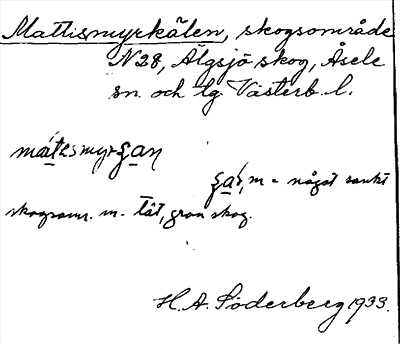 Mattismyrkälen, skogsområde
N 28, Älgsjö skog, Åsele
sn. och lg Västerb. l.
m = något sankt
skogsomr. m. tät, gran skog.
H. A. Söderberg 1933.